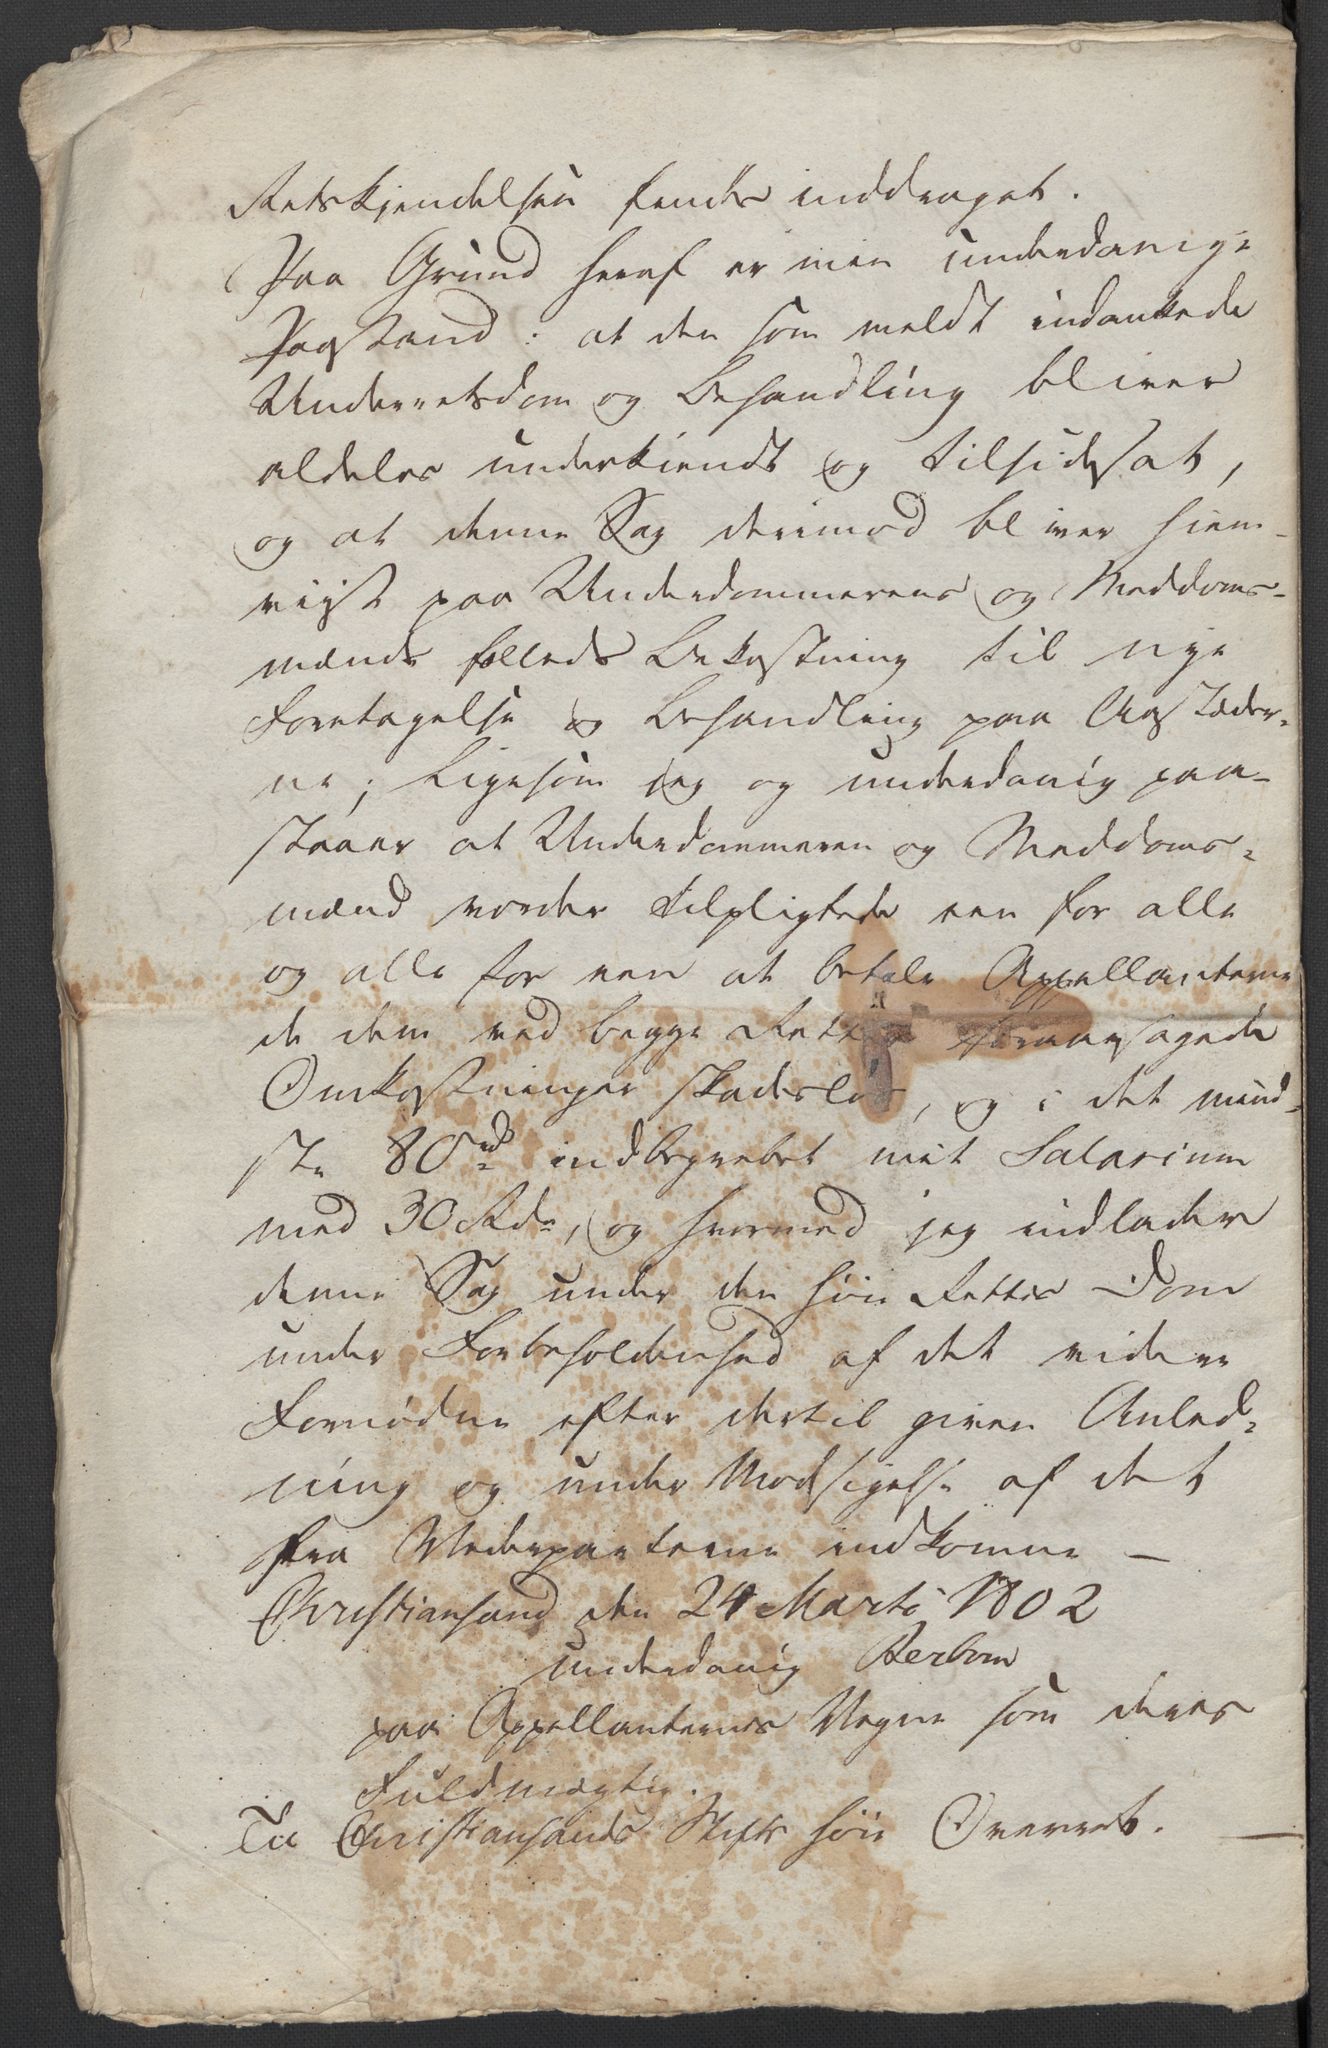 Retskjendelsen findes inddraget.
Paa Grund heraf er min underdanige
Paastand: at den som meldt indankede
Underretsdom og Behandling bliver
aldeles underkiendt og tilsidesat,
og at denne Sag derimod bliver hiem-
viist paa Underdommerens og Meddoms-
mænds fælleds Bekostning til nye
Foretagelse og Behandling paa Aastæder-
ne; Ligesom jeg og underdanig paa-
staaer at Underdommeren og Meddoms-
mænd vorder tilpligtede een for alle
og alle for een at betale Appellanterne
de dem ved begge Retter foraarsagede
Omkostninger skadesløs, og i det mind-
ste 80 rd indbegrebet mit Salarium
med 30 Rdr, og hvormed jeg indlader
denne Sag under den høie Rettes Dom
under Forbeholdenhed af det videre
Fornødne efter dertil given Anled-
ning og under Modsigelse af det
fra Vederparterne indkomne —
Christiansand den 24 Marti 1802
underdanig Aerbom
paa Appellanternes Vegne som deres
Fuldmægtig.
Til Christiansands Stifts høie Overret.